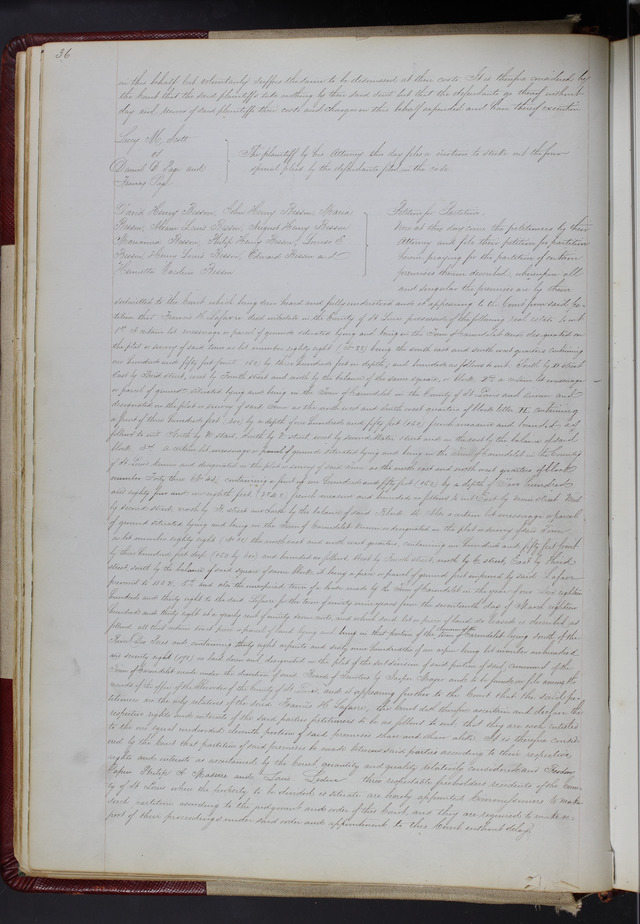 36
in this behalf but voluntarily suffers the same to be dismissed at their costs. It is therefore considered by
the Court that the said plaintiffs take nothing by their said suit but that the defendants go thereof without
day and recover of said plaintiffs their costs and charges in this behalf expended and have thereof execution
Lucy M. Scott
vs
Daniel D. Page and
Francis Page
The plaintiff by her Attorney this day files a motion to strike out the
special pleas by the defendants filed in the cause.
David Henry John Henry Maria
Louis August Henry
Marianna Philip Henry Louisa C.
Henry Louis Edward and
Henrietta Caroline
Petition for Partition.
Now at this day come the petitioners by their
Attorney and file their petition for partition
herein praying for the partition of certain
premises therein described, wherefore all
and singular the premises are by them
submitted to the Court which being seen heard and fully understood and it appearing to the Court from said
tition that Francis H. Lafavre died intestate in the County of St. Louis possessed of the following real estate to wit
1st A certain lot messuage or parcel of ground situated lying and being in the Town of Carondelet and designated on
the plat or survey of said town as lot number eighty eight (No 88) being the south east and south west quarters containing
one hundred and fifty feet front (150) by three hundred feet in depth, and bounded as follows to wit South by street
East by Third street, west by Fourth street and north by the balance of the same square or block 2nd a certain lot messuage
or parcel of ground situated lying and being in the Town of Carondelet in the County of St. Louis and
designated on the plat or survey of said Town as the north west and south west quarters of block containing
a front of three hundred feet (300) by a depth of one hundred and fifty feet (150) french measure and bounded as
follows to wit North by street, South by street west by Second street and on the east by the balance of said
block 3rd a certain lot messuage or parcel of ground situated lying and being in the Town of Carondelet in the County
of St. Louis and designated on the plat or survey of said Town as the north east and north west quarters of block
number Forty three containing a front of one hundred and fifty feet (150) by a depth of
and eighty four and six eighth feet french measure and bounded as follows to wit East by Main street West
by second street, north by street and south by the balance of said Block 4th Also a certain lot messuage or parcel
of ground situated lying and being in the Town of Carondelet designated on the plat or survey of said Town
as lot number eighty eight (No 88) the north east and north west quarters, containing one hundred and fifty feet front
by three hundred feet deep (150 by 300) and bounded as follows West by Fourth street, north by street East by Third
street south by the balance of said square of same block it being a piece or parcel of ground first improved by said Lafavre
previous to 1828. 5th and also the unexpired term of a lease made by the Town of Carondelet in the year of our Lord eighteen
hundred and thirty eight to the said Lafavre for the term of ninety nine years from the seventeenth day of March eighteen
hundred and thirty eight at a yearly rent of and which said lot or piece of land so leased is described as
follows, all that certain tract piece or parcel of land lying and being in that portion of the commons of the town of Carondelet lying south of the
River Des Peres and containing thirty eight arpents and sixty nine hundredths of an arpen being lot number one hundred
and seventy eight (178) as laid down and designated on the plat of the subdivision of said portion of said commons of the
Town of Carondelet made under the direction of said Board of Trustees by and to be found on file among the
records of the office of the Recorder of the County of St. Louis. and it appearing further to the Court that the said pe-
titioners are the only relatives of the said Francis H. Lafavre, the Court did therefore ascertain and declare the
respective rights and interests of the said parties petitioners to be as follows to wit, that they are each entitled
to the one equal undivided eleventh portion of said premises share and share alike. It is therefore consid-
ered by the Court that partition of said premises be made between said parties according to their respective
rights and interests as ascertained by the Court quantity and quality relatively considered and
Papin Philip A. and Louis three respectable freeholders residents of the Coun-
ty of St. Louis where the property to be divided is situate are hereby appointed Commissioners to make
such partition according to the judgment and order of this Court, and they are required to make re-
port of their proceedings under said order and appointment to this Court without delay.